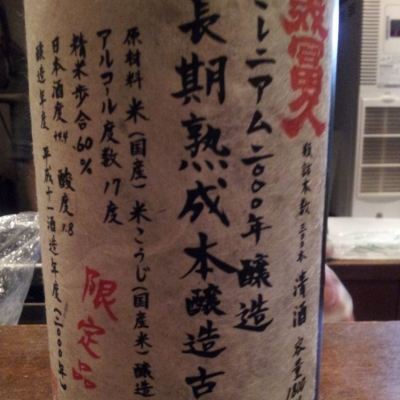 燕富久
瓶詰本数 三〇〇本 清酒 容量
ミレニアム二〇〇〇年醸造
長期熟成本醸造古
原材料 米(国産)米こうじ(国産米)醸造
アルコール度数 17度
精米歩合 60%
日本酒度 酸度1.8
醸造年度 平成十一酒造年度(二〇〇〇年)
限定品